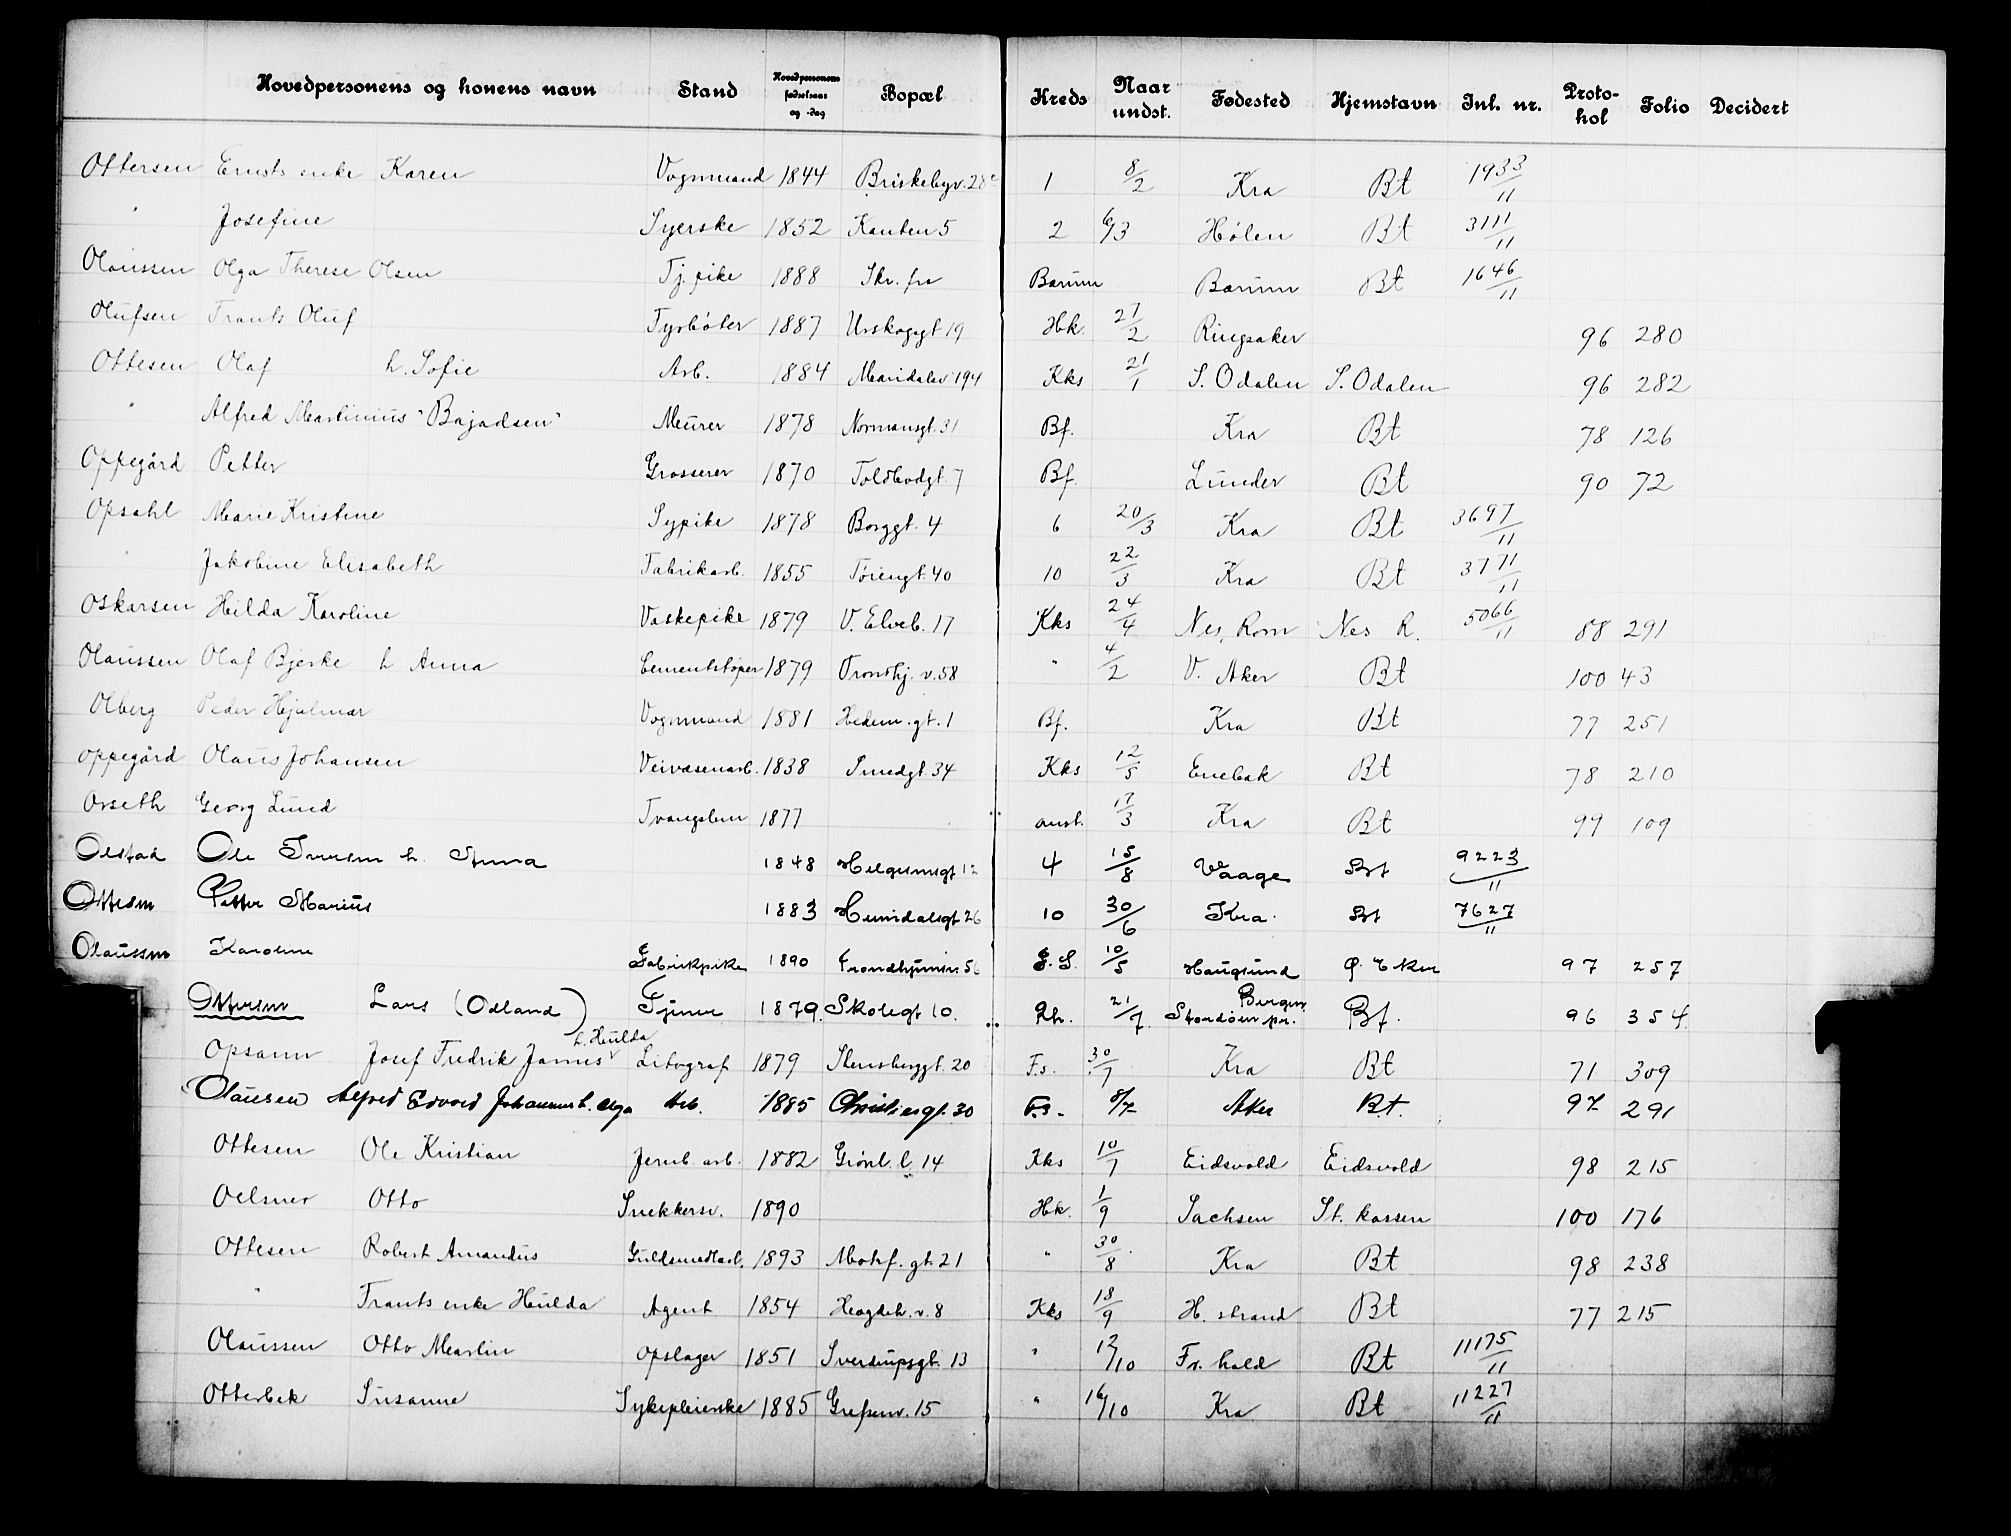 Hovedpersonens og konens navn Stand Hovedpersonens fødselsaar og -dag Bopæl Kreds Naar undst. Fødested Hjemstavn Inl. nr. Protokol Folio Decidert
Ottersen Ernsts enke Karen Vognmand 1844 Briskebyv. 28 1 8/2 Kra Bt 1933/11
" Josefine Syerske 1852 Kanten 5 2 6/3 Hølen Bt 3111/11
Olaussen Olga Therese Olsen Tj. pike 1888 Skr. fra Bærum Bærum Bt 1646/11
Olufsen Frants Oluf Fyrbøter 1887 Urskoggt 19 Hk. 27/2 Ringsaker 96 280
Ottesen Olaf h. Sofie Arb. 1884 Maridalsv. 194 Kks 21/1 S. Odalen S. Odalen 96 282
" Alfred Martinius "Bajadsen" Murer 1878 Normansgt. 31 Bf. Kra Bt 78 126
Oppegård Petter Grosserer 1870 Toldbodgt. 7 Bf. Lunder Bt 90 72
Opsahl Marie Kristine Sypike 1878 Borggt. 4 6 20/3 Kra Bt 3697/11
" Jakobine Elisabeth Fabrikarb. 1855 Tøiengt. 40 10 22/3 Kra Bt 3771/11
Oskarsen Hilda Karoline Vaskepike 1879 V. Elveb. 17 Kks 24/4 Nes, Rom Nes R. 5066/11 88 291
Olaussen Olaf Bjerke h Anna Cementstøper 1879 Trondhj. v. 58 " 4/2 V. Aker Bt 100 43
Olberg Peder Hjalmar Vognmand 1881 Hedem. gt. 1 Bf. Kra Bt 77 251
Oppegård Olaus Johansen Veivæsenarb. 1838 Smedgt. 34 Kks 12/5 Enebak Bt 78 210
Orseth Georg Lund Tvangslem 1877 anst. 17/3 Kra Bt 99 109
Olstad Ole Iversen h. Anna 1848 Helgesensgt 12 4 15/8 Vaage Bt 9223/11
Ottesen Petter Marius 1883 Heimdalsgt 26 10 30/6 Kra. Bt 7627/11
Olaussen Karoline Fabrikpike 1890 Trondhjemsv. 56 F.S. 10/5 Haugsund Ø. Eker 97 257
Ottersen Lars (Odland) Tjener 1879. Skolegt 10. Rh. 21/7. Bergen Bf. 96 354
Opsann Josef Fredrik James h. Hulda Litograf 1879 Stensberggt. 20 F.s. 30/7 Kra Bt 71 309
Olausen Alfred Edvard Johannes h. Olga Arb. 1885 Christiesgt. 30 F.s. 8/7 Aker B.t. 97 291
Ottesen Ole Kristian Jernb. arb. 1882 Grønl. l. 14 Kks 10/7 Eidsvold Eidsvold 98 215
Oelsner Otto Snekkersv. 1890 Hk. 1/9 Sachsen St. kassen 100 176
Ottesen Robert Amandus Guldsmedarb. 1893 Motzf. gt. 21 " 30/8 Kra Bt 98 238
" Frants enke Hulda Agent 1854 Heegdeh. v. 8 Kks 18/9 H. strand Bt 77 215
Olaussen Otto Martin Opslager 1851 Sverdrupsgt. 13 " 12/10 Fr. hald Bt 11175/11
Otterbek Susanne Sykepleierske 1885 Grefsenv. 15 " 16/10 Kra Bt 11227/11